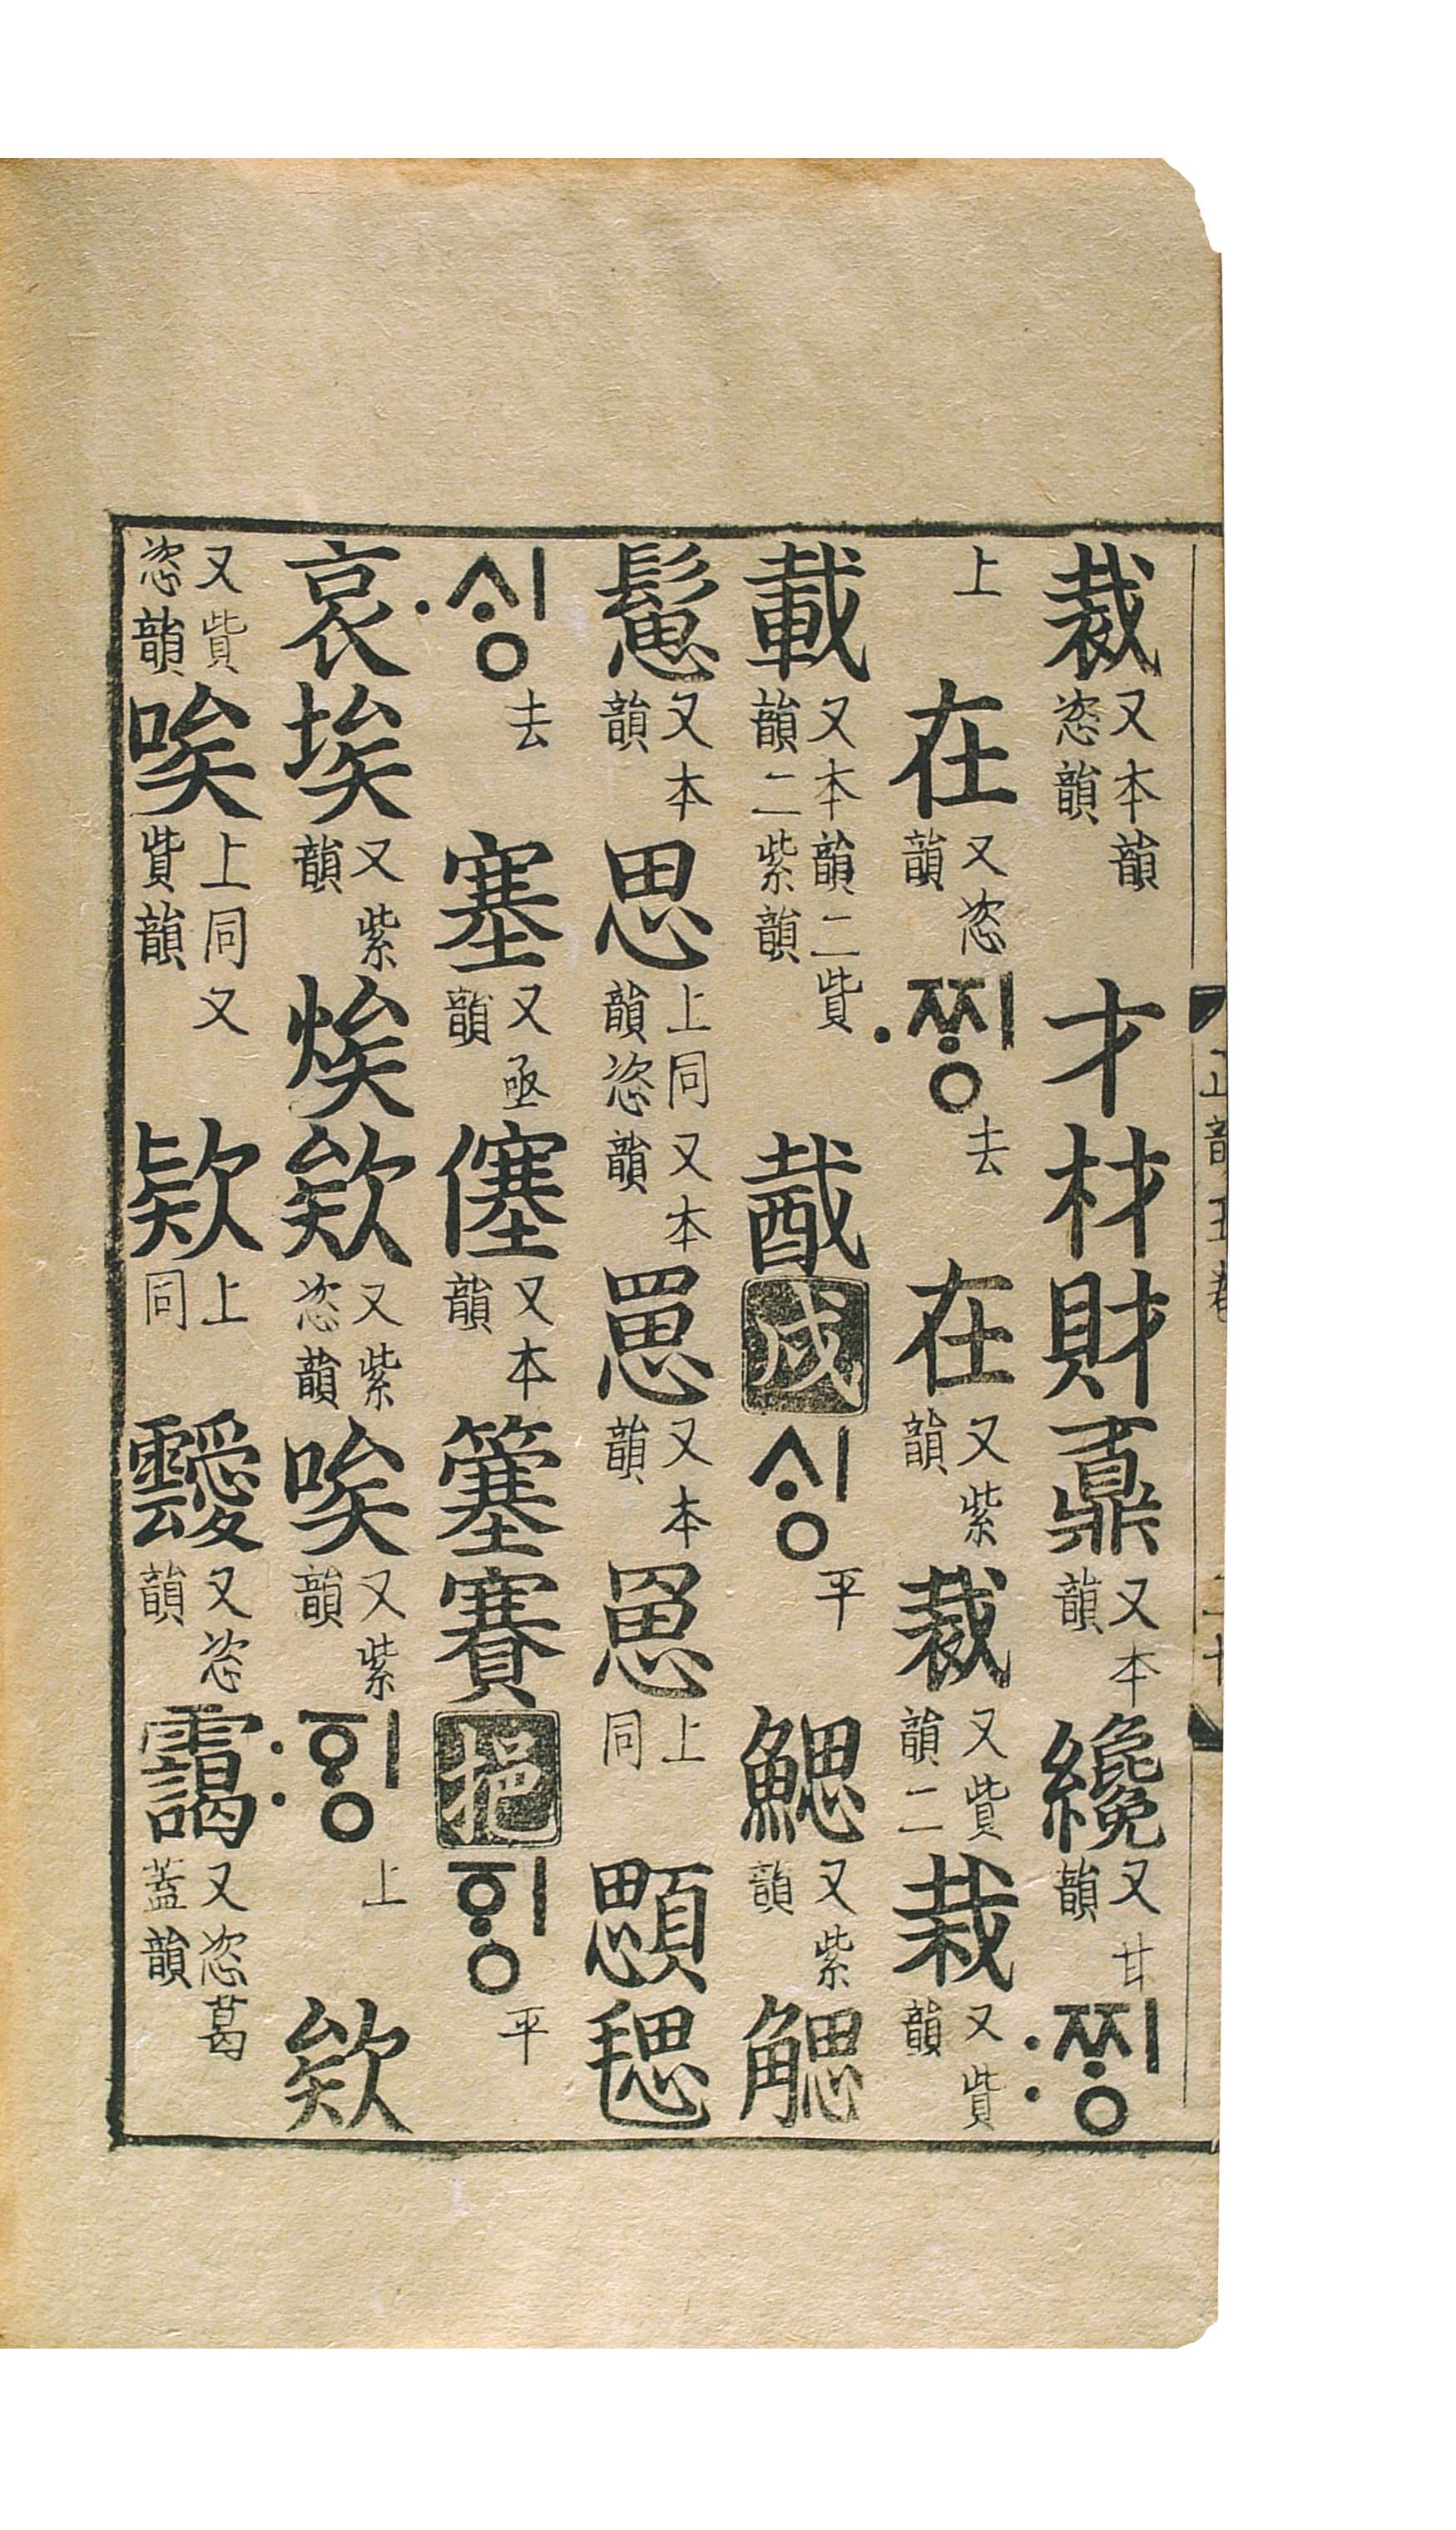 裁又本韻恣韻才材財鼒又本韻纔又甘韻:ᄍᆡᆼ
上在又恣韻·ᄍᆡᆼ去在又紫韻裁又貲韻二栽又貲韻
載又本韻二貲韻二紫韻酨戌ᄉᆡᆼ平鰓又紫韻䚡
䰄又本韻思上同又本韻恣韻罳又本韻上同顋毸
·ᄉᆡᆼ去塞又亟韻僿又本韻簺賽挹ᅙᆡᆼ平
哀埃又紫韻欸又紫恣韻唉又紫韻:ᅙᆡᆼ上欸
又貲恣韻唉上同又貲韻上同靉又恣韻靄又恣葛蓋韻